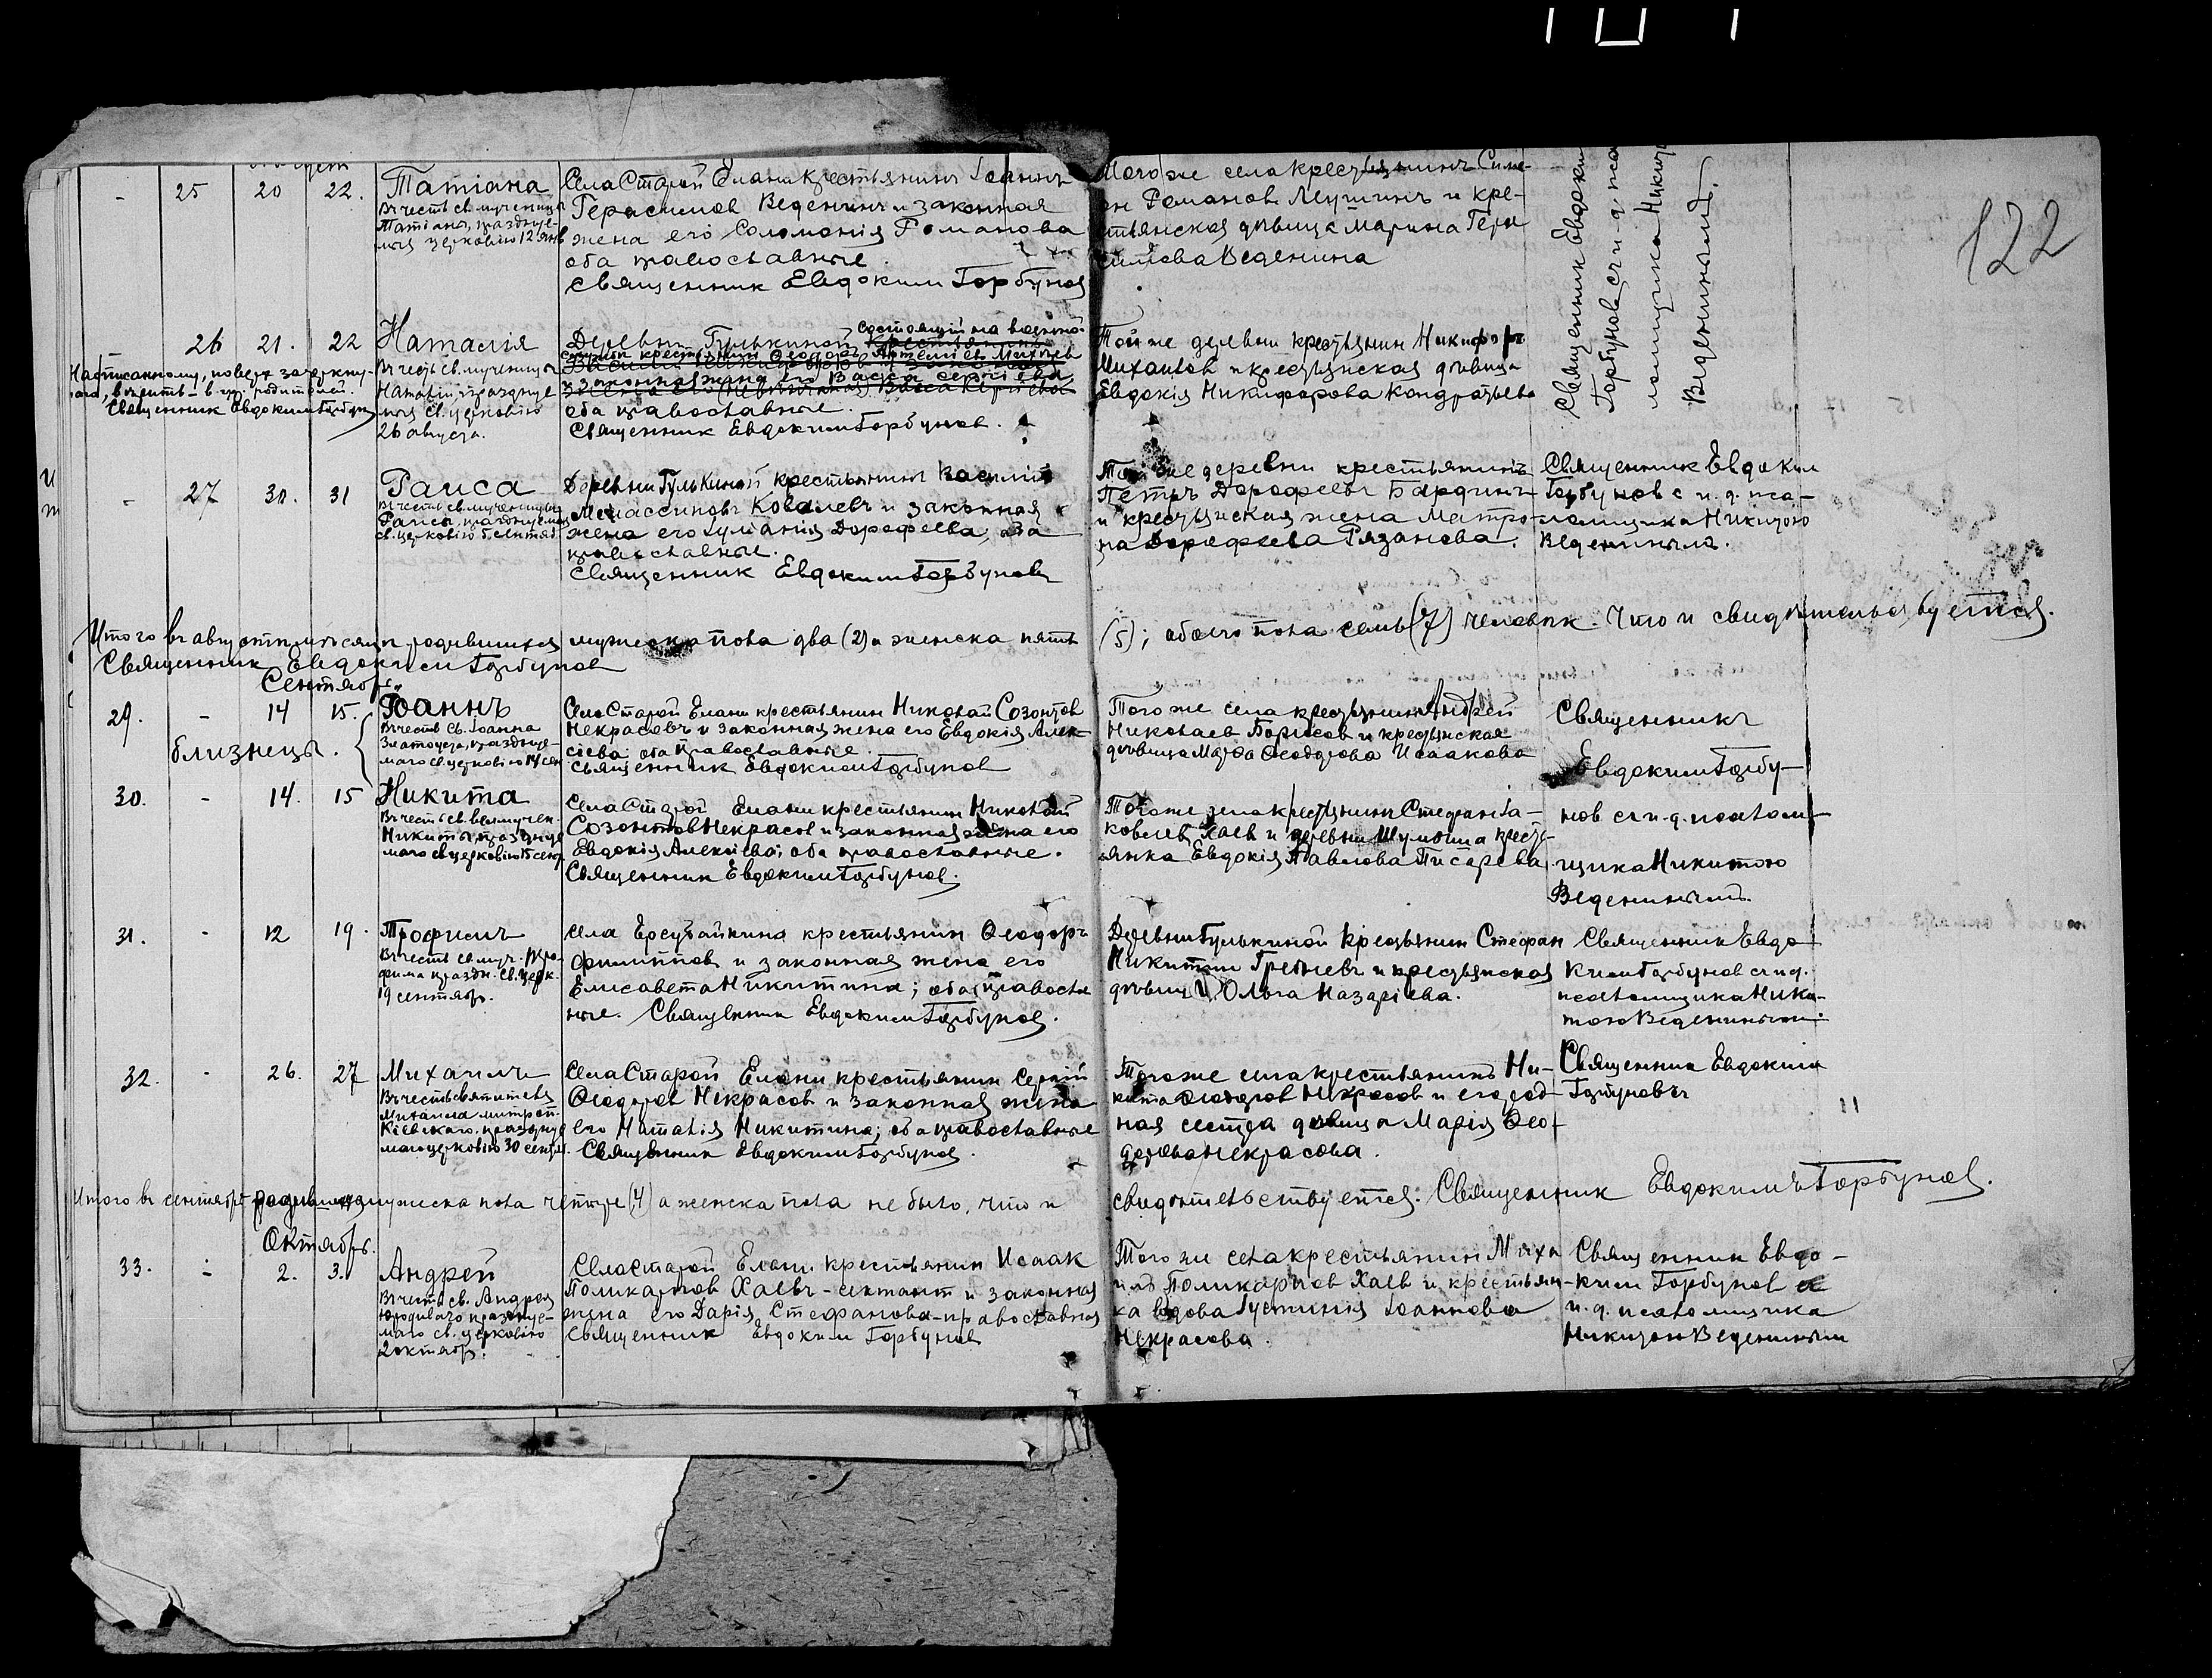 122
25 20 22. Татіана
Въ честь св. мученицы
Татіаны, празднуе-
мыя церковію 12 янв
Села Старой Елани крестьянинъ Іоаннъ
Герасимов Веденинъ и законная
жена его Соломонія Романова
оба православные.
Священник Евдоким Горбунов
Того же села крестьянинъ Симе-
он Романов Мушинъ и кре-
стьянская дѣвица Марина Гера
симова Веденина
Священник Евдоким
Горбунов с и. д. пса
ломщика Никит
Ведениным.
26 21. 22 Наталія
Въ честь св. мученицы
Наталіи, празднуе
мыя св. церковію
26 августа.
Надписанному, поверх зачеркну-
, вѣрить - в гр. родителей.
Священник Евдоким Горбунов
Деревни Гулькиной крестьянинъ состоящий на военной
службѣ крестьянин Ѳеодор Артеміев Михеев
и законная жена его Васса Сергіева
оба православные.
Священник Евдоким Горбунов.
Той же деревни крестьянин Никифор
Михайлов и крестьянская дѣвица
Евдокія Никифорова Кондратьева
- 27 30. 31 Раиса
Въ честь св. мученицы
Раисы, празднуемыя
св. церковію 5 сентяб
Деревни Гулькиной крестьянин Василій
Ковалевъ и законная
жена его Дорофеева, оба
православные.
Священник Евдоким Горбуновъ
Той же деревни крестьянинъ
Петръ Дорофеевъ Бардинъ
и крестьянская жена Матро-
на Дорофеева Рязанова.
Священник Евдоким
Горбунов с и. д. пса-
ломщика Никитою
Ведениным.
Итого въ августѣ мѣсяцѣ родившихся мужеска пола два (2) а женска пять (5); обоего пола семь (7) человѣк. Что и свидѣтельствуется.
Священник Евдоким Горбунов
Сентябрь
29. - 14 15. Іоаннъ
Въ честь св. Іоанна
Златоуста, празднуе-
маго св. церковію 14 сен
близнецы.
Села Старой Елани крестьянин Николай Созонтов
Некрасовъ и законная жена его Евдокія Алек-
сіева оба православные.
Священник Евдоким Горбунов
Того же села крестьянин Андрей
Николаев Борисов и крестьянская
дѣвица Марѳа Ѳеодорова Исаакова
Священникъ
Евдоким Горбу-
30. - 14. 15 Никита
Въ честь св. великомучен.
Никиты, празднуе
маго св. церковію 15 сент.
Села Старой Елани крестьянин Николай
Созонтов Некрасов и законная жена его
Евдокія Алексіева; оба православные.
Священник Евдоким Горбунов.
Того же села крестьянин Стефан Іа-
ковлев Хаев и деревни Шумкина крестья
янка Евдокія Павлова Писарева.
нов с и. д. псалом-
щика Никитою
Ведениным.
31. - 12 19. Трофимъ
Въ честь св. муч. Тро-
фима праздн. св. церк.
19 сентябр.
Села Ерсубайкина крестьянин Ѳеодоръ
Филиппов и законная жена его
Елисавета Никитина; оба православ
ные. Священник Евдоким Горбунов.
Деревни Гулькиной крестьянин Стефан
Никитин Гребневъ и крестьянская
дѣвица Ольга Назаріева.
Священник Евдо
ким Горбунов с и д.
псаломщика Ники-
тою Ведениным.
32. - 26. 27 Михаилъ
Въ честь святителя
Михаила митроп.
Кіевскаго, празднуе
маго церковію 30 сентяб.
Села Старой Елани крестьянин Сергій
Ѳеодоров Некрасов и законная жена
его Наталія Никитина; оба православные
Священник Евдоким Горбунов.
Того же села крестьянинъ Ни-
кита Ѳеодоров Некрасов и его род
ная сестра дѣвица Марія Ѳео-
дорова Некрасова.
Священник Евдоким
Горбуновъ
Итого въ сентябрѣ родившихся мужеска пола четыре (4) а женска пола не было, что и свидѣтельствуется: Священник Евдокимъ Горбунов.
Октябрь.
33. - 2. 3. Андрей
Въ честь св. Андрея
Юродиваго празднуе-
маго св. церковію
2 октябр.
Села Старой Елани крестьянин Исаак
Поликарпов Хаевъ - сектант и законная
жена его Дарія Стефанова - православная
Священник Евдоким Горбунов
Того же села крестьянин Миха
ил Поликарпов Хаев и крестьян-
ка вдова Густинія Іоаннова
Некрасова.
Священник Евдо-
ким Горбунов с
и. д. псаломщика
Никитою Ведениным